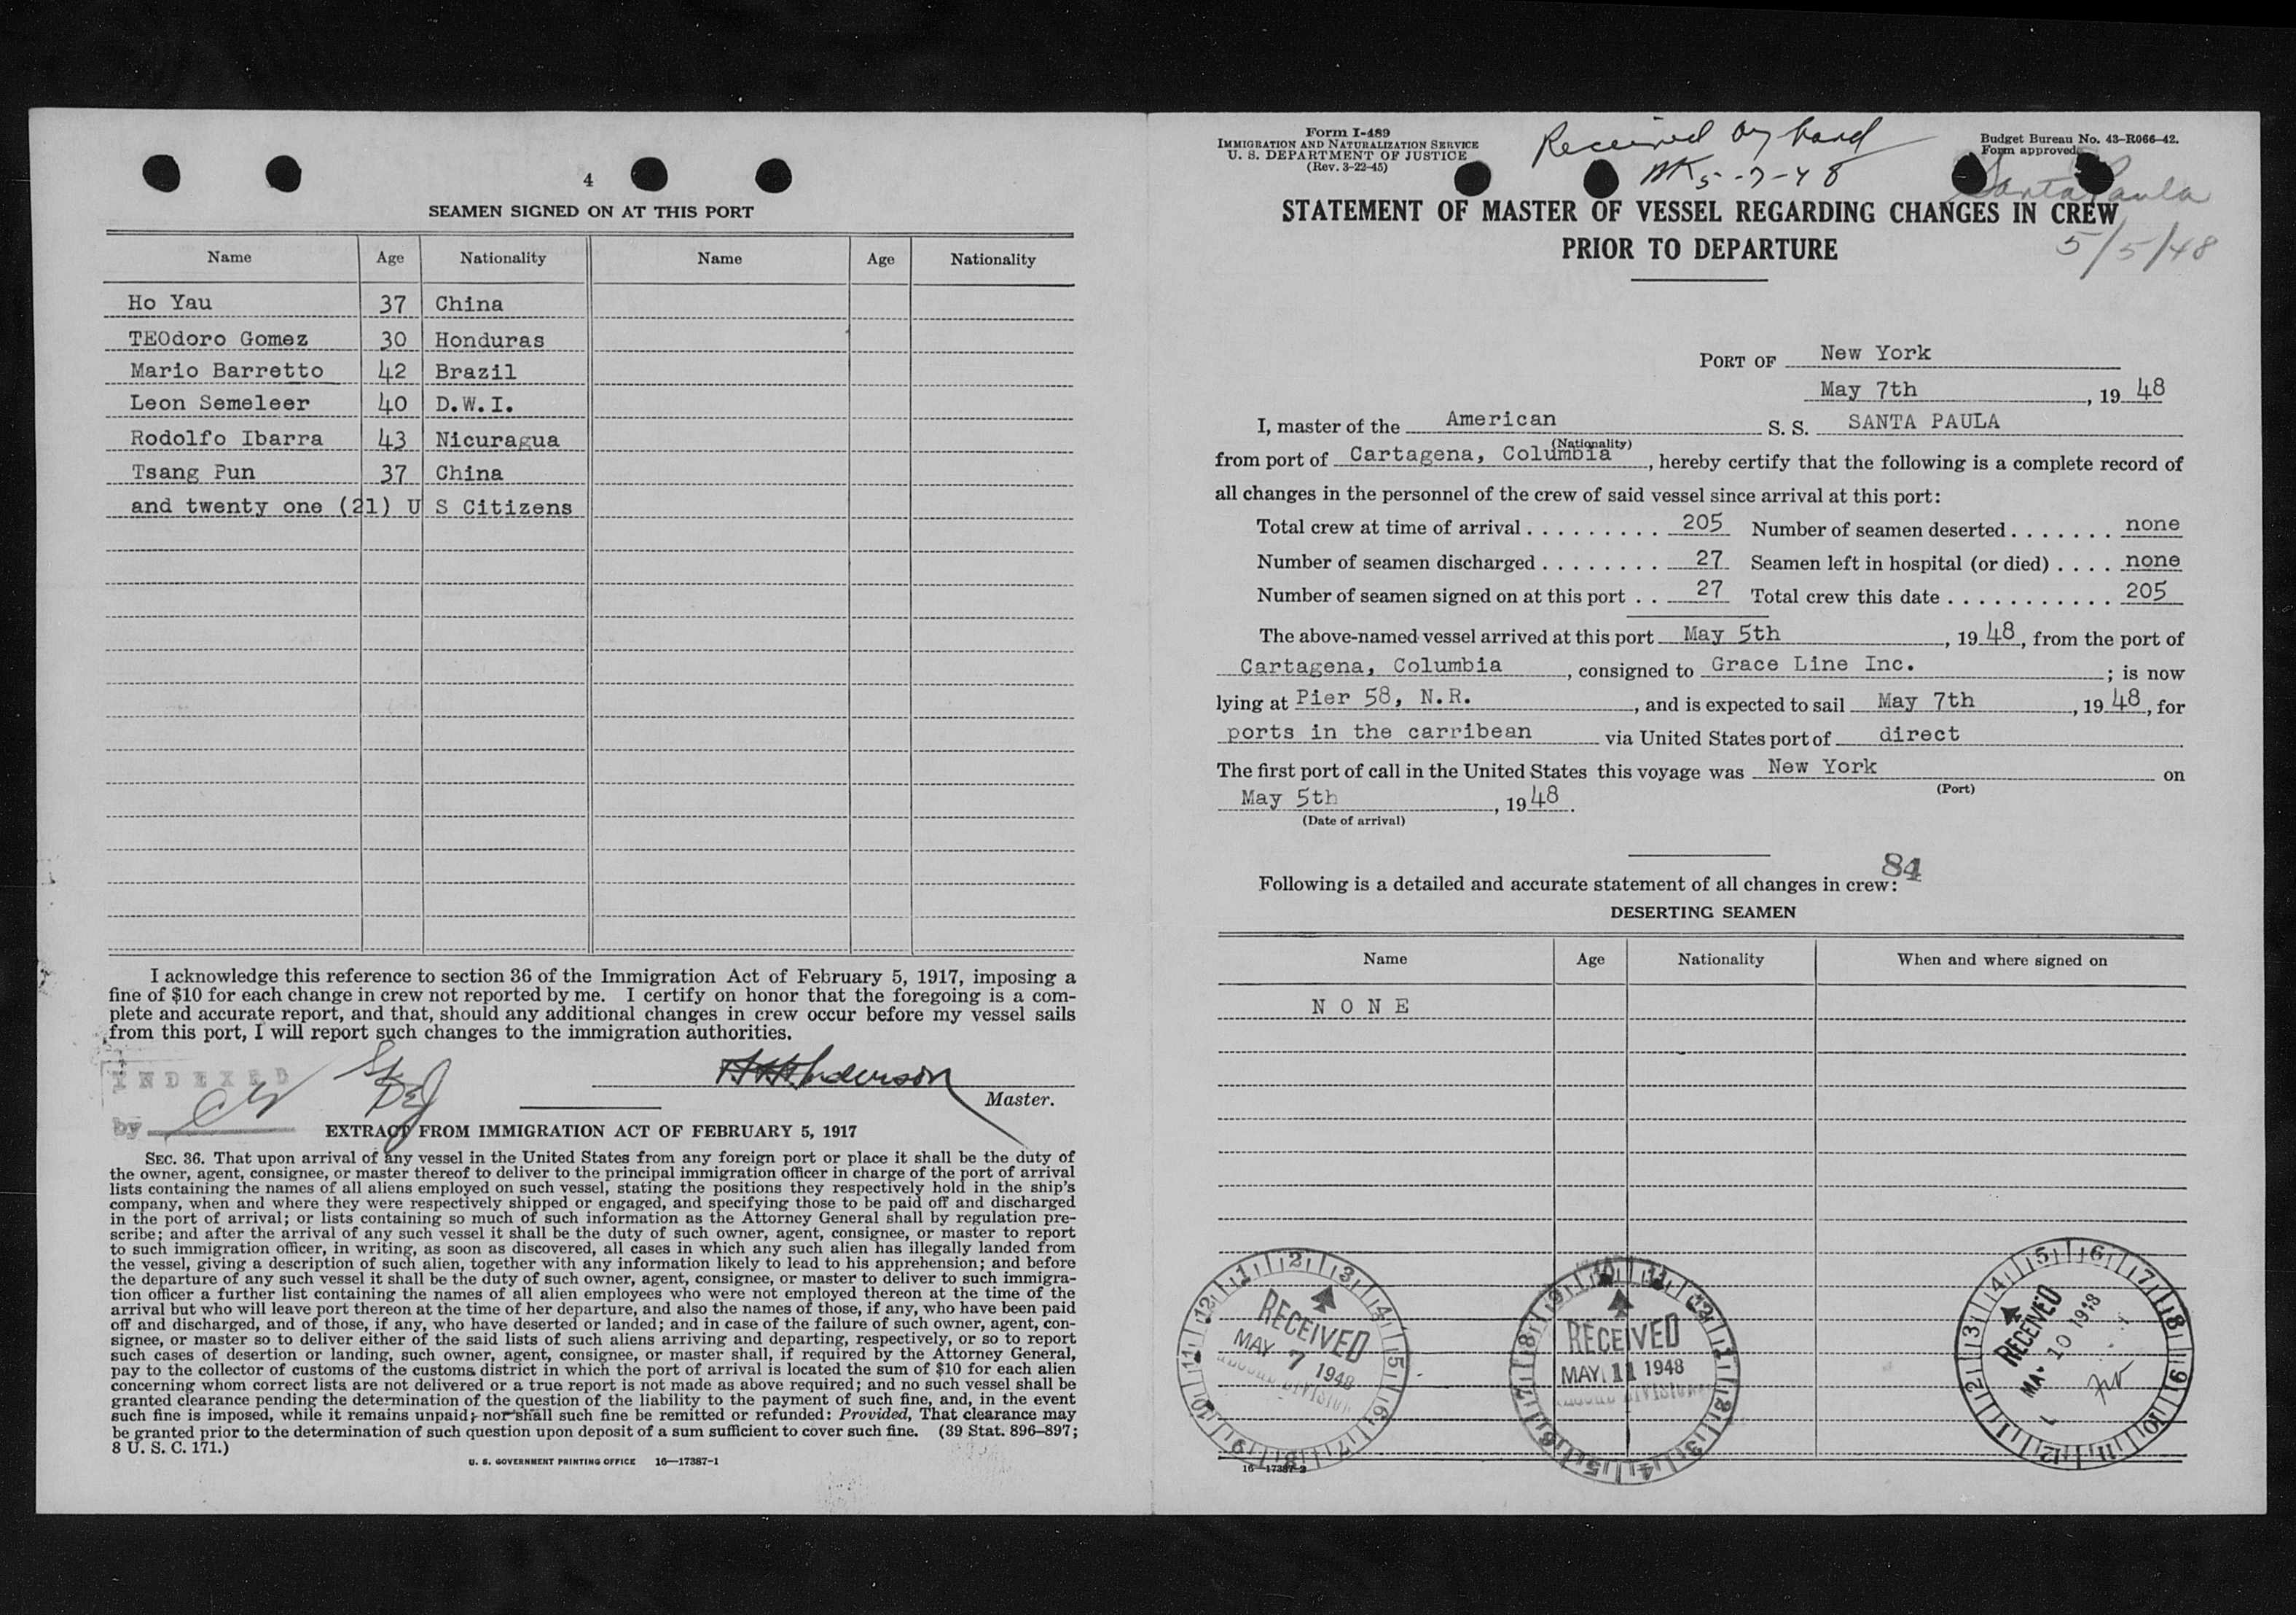 4
SEAMEN SIGNED ON AT THIS PORT
Name Age Nationality Name Age Nationality
Ho Yau 37 China
TEOdoro Gomez 30 Honduras
Mario Barretto 42 Brazil
Leon Semeleer 40 D.W.I.
Rodolfo Ibarra 43 Nicuragua
Tsang Pun 37 China
and twenty one (21) U S Citizens
I acknowledge this reference to section 36 of the Immigration Act of February 5, 1917, imposing a
fine of $10 for each change in crew not reported by me. I certify on honor that the foregoing is a com-
plete and accurate report, and that, should any additional changes in crew occur before my vessel sails
from this port, I will report such changes to the immigration authorities.
INDEXED
by
Anderson
Master.
EXTRACT FROM IMMIGRATION ACT OF FEBRUARY 5, 1917
SEC. 36. That upon arrival of any vessel in the United States from any foreign port or place it shall be the duty of
the owner, agent, consignee, or master thereof to deliver to the principal immigration officer in charge of the port of arrival
lists containing the names of all aliens employed on such vessel, stating the positions they respectively hold in the ship's
company, when and where they were respectively shipped or engaged, and specifying those to be paid off and discharged
in the port of arrival; or lists containing so much of such information as the Attorney General shall by regulation pre-
scribe; and after the arrival of any such vessel it shall be the duty of such owner, agent, consignee, or master to report
to such immigration officer, in writing, as soon as discovered, all cases in which any such alien has illegally landed from
the vessel, giving a description of such alien, together with any information likely to lead to his apprehension; and before
the departure of any such vessel it shall be the duty of such owner, agent, consignee, or master to deliver to such immigra-
tion officer a further list containing the names of all alien employees who were not employed thereon at the time of the
arrival but who will leave port thereon at the time of her departure, and also the names of those, if any, who have been paid
off and discharged, and of those, if any, who have deserted or landed; and in case of the failure of such owner, agent, con-
signee, or master so to deliver either of the said lists of such aliens arriving and departing, respectively, or so to report
such cases of desertion or landing, such owner, agent, consignee, or master shall, if required by the Attorney General,
pay to the collector of customs of the customs district in which the port of arrival is located the sum of $10 for each alien
concerning whom correct lists are not delivered or a true report is not made as above required; and no such vessel shall be
granted clearance pending the determination of the question of the liability to the payment of such fine, and, in the event
such fine is imposed, while it remains unpaid; nor shall such fine be remitted or refunded: Provided, That clearance may
be granted prior to the determination of such question upon deposit of a sum sufficient to cover such fine. (39 Stat. 896–897;
8 U. S. C. 171.)
U. S. GOVERNMENT PRINTING OFFICE 16—17387-1
Form I-489
IMMIGRATION AND NATURALIZATION SERVICE
U. S. DEPARTMENT OF JUSTICE
(Rev. 3-22-45)
Received by hand
5-7-48
Budget Bureau No. 43-R066-42.
Form approved
Santa Paula
5/5/48
STATEMENT OF MASTER OF VESSEL REGARDING CHANGES IN CREW
PRIOR TO DEPARTURE
PORT OF New York
May 7th, 1948
I, master of the American S. S. SANTA PAULA
(Nationality)
from port of Cartagena, Columbia, hereby certify that the following is a complete record of
all changes in the personnel of the crew of said vessel since arrival at this port:
Total crew at time of arrival . . . . . . . . . 205 Number of seamen deserted . . . . . . . none
Number of seamen discharged . . . . . . . . 27 Seamen left in hospital (or died) . . . . none
Number of seamen signed on at this port . . 27 Total crew this date . . . . . . . . . . . 205
The above-named vessel arrived at this port May 5th, 1948, from the port of
Cartagena, Columbia, consigned to Grace Line Inc.; is now
lying at Pier 58, N.R., and is expected to sail May 7th, 1948, for
ports in the carribean via United States port of direct
The first port of call in the United States this voyage was New York on
(Port)
May 5th, 1948.
(Date of arrival)
84
Following is a detailed and accurate statement of all changes in crew:
DESERTING SEAMEN
Name Age Nationality When and where signed on
N O N E
RECEIVED
MAY 7 1948
RECEIVED
MAY 11 1948
DIVISION
RECEIVED
MAY 10 1948
16—17387-2